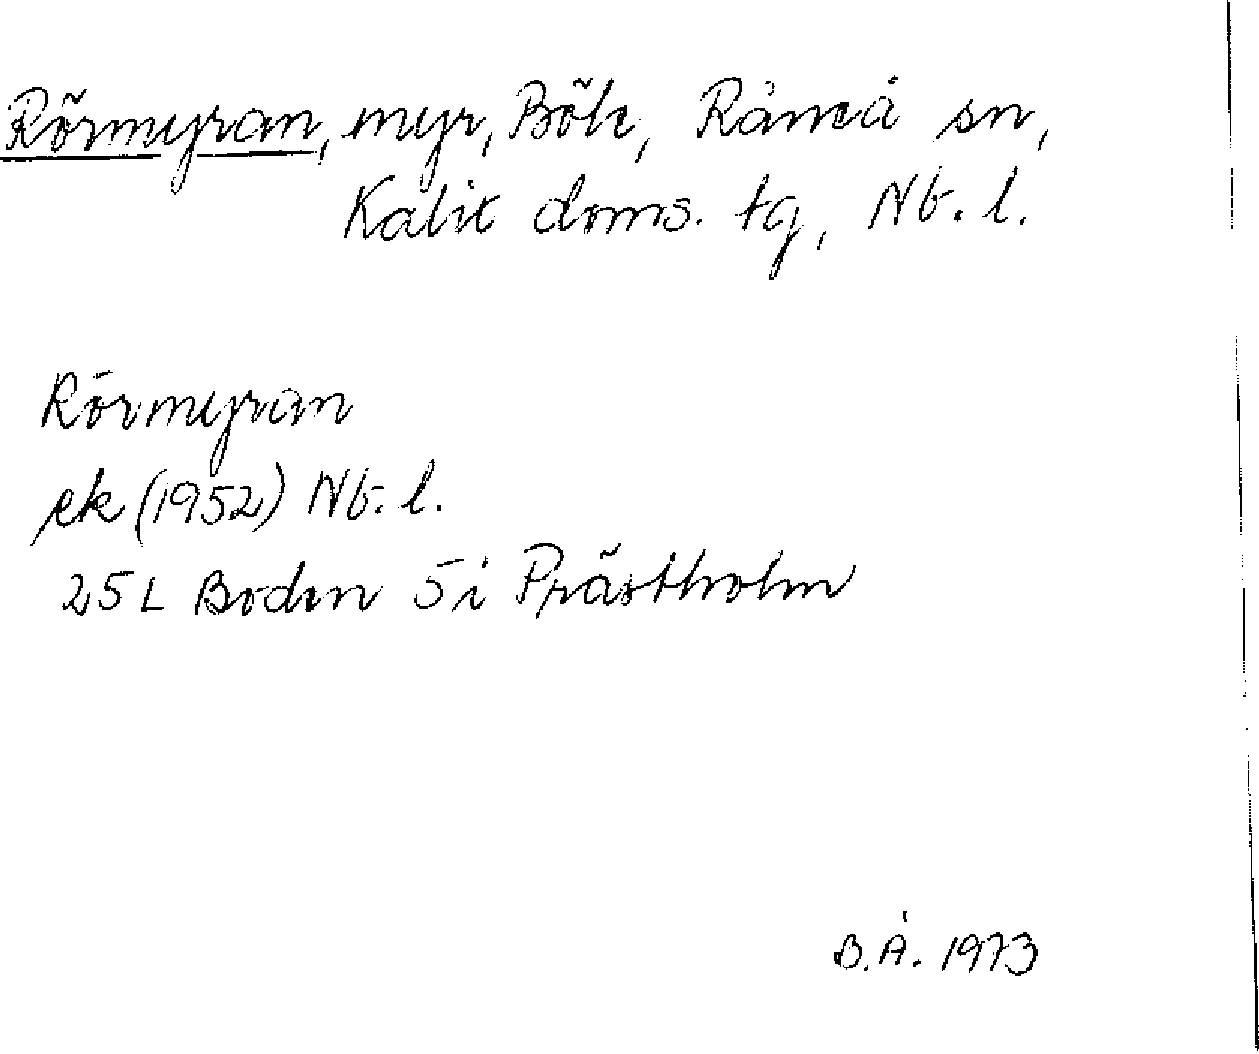 Rörmyran, myr, Böle, Råneå sn,
Kalix doms. tg, Nb. l.
Rörmyran
ek (1952) Nb. l.
25 L Boden 5i Prästholm
B.Å. 1973